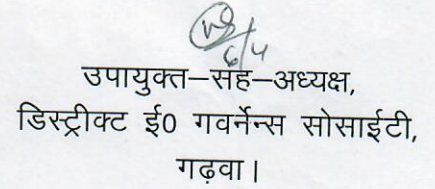 6/4
उपायुक्त–सह–अध्यक्ष,
डिस्ट्रीक्ट ई0 गवर्नेन्स सोसाईटी,
गढ़वा।